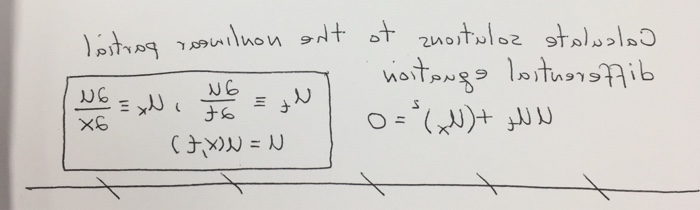 Calculate solutions to the nonlinear partial
differential equation
NNₜ + (Nₓ)² = 0
Nₜ ≡ ∂N/∂t , Nₓ ≡ ∂N/∂x
N = N(x,t)